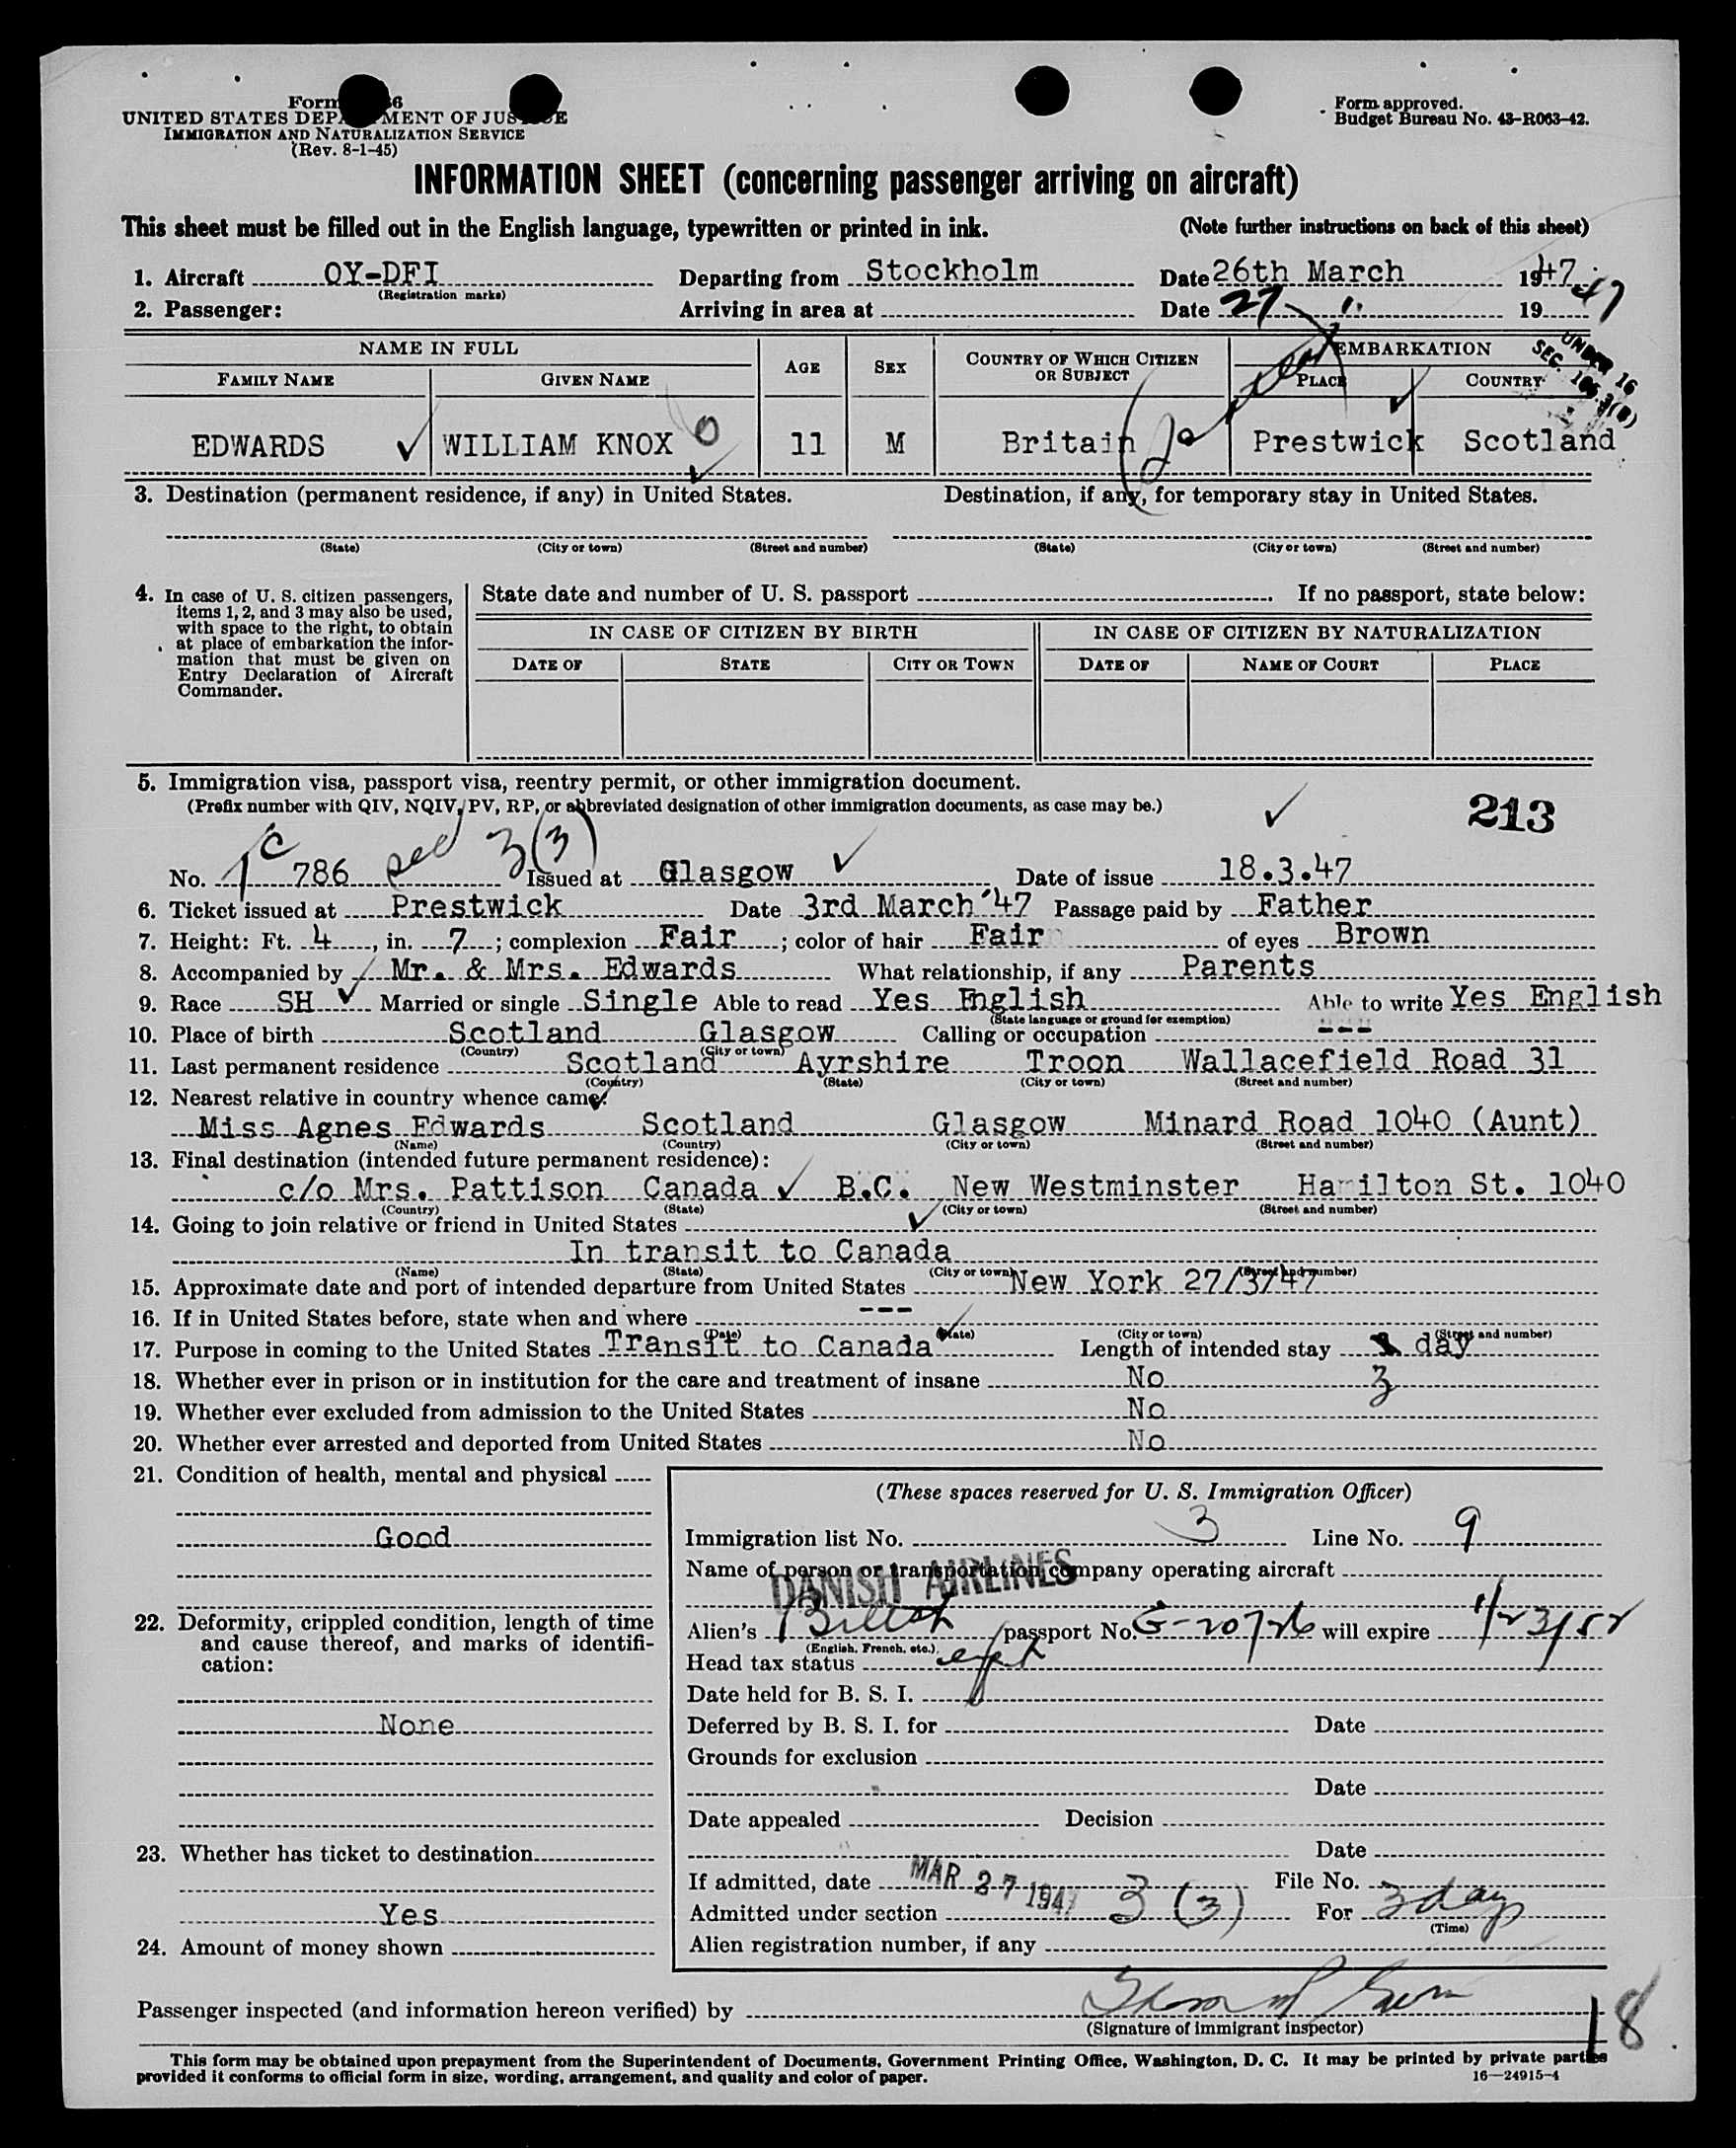 Form 6
UNITED STATES DEPARTMENT OF JUSTICE
IMMIGRATION AND NATURALIZATION SERVICE
(Rev. 8-1-45)
Form approved.
Budget Bureau No. 43-R063-42.
INFORMATION SHEET (concerning passenger arriving on aircraft)
This sheet must be filled out in the English language, typewritten or printed in ink. (Note further instructions on back of this sheet)
1. Aircraft OY-DFI Departing from Stockholm Date 26th March 1947.
(Registration marks)
2. Passenger: Arriving in area at Date 27 19 47
UNDER 16
SEC.
NAME IN FULL AGE SEX COUNTRY OF WHICH CITIZEN OR SUBJECT EMBARKATION
FAMILY NAME GIVEN NAME PLACE COUNTRY
EDWARDS WILLIAM KNOX 0 11 M Britain Prestwick Scotland
3. Destination (permanent residence, if any) in United States. Destination, if any, for temporary stay in United States.
(State) (City or town) (Street and number) (State) (City or town) (Street and number)
4. In case of U. S. citizen passengers, items 1, 2, and 3 may also be used, with space to the right, to obtain at place of embarkation the information that must be given on Entry Declaration of Aircraft Commander.
State date and number of U. S. passport If no passport, state below:
IN CASE OF CITIZEN BY BIRTH IN CASE OF CITIZEN BY NATURALIZATION
DATE OF STATE CITY OR TOWN DATE OF NAME OF COURT PLACE
5. Immigration visa, passport visa, reentry permit, or other immigration document.
(Prefix number with QIV, NQIV, PV, RP, or abbreviated designation of other immigration documents, as case may be.)
213
No. TC 786 sec 3(3) Issued at Glasgow Date of issue 18.3.47
6. Ticket issued at Prestwick Date 3rd March '47 Passage paid by Father
7. Height: Ft. 4, in. 7; complexion Fair; color of hair Fair of eyes Brown
8. Accompanied by Mr. & Mrs. Edwards What relationship, if any Parents
9. Race SH Married or single Single Able to read Yes English Able to write Yes English
(State language or ground for exemption)
10. Place of birth Scotland Glasgow Calling or occupation ---
(Country) (City or town)
11. Last permanent residence Scotland Ayrshire Troon Wallacefield Road 31
(Country) (State) (City or town) (Street and number)
12. Nearest relative in country whence came:
Miss Agnes Edwards Scotland Glasgow Minard Road 1040 (Aunt)
(Name) (Country) (City or town) (Street and number)
13. Final destination (intended future permanent residence):
c/o Mrs. Pattison Canada B.C. New Westminster Hamilton St. 1040
(Country) (State) (City or town) (Street and number)
14. Going to join relative or friend in United States
In transit to Canada
(Name) (State) (City or town) (Street and number)
15. Approximate date and port of intended departure from United States New York 27/3/47
16. If in United States before, state when and where ---
(Date) (State) (City or town) (Street and number)
17. Purpose in coming to the United States Transit to Canada Length of intended stay day
3
18. Whether ever in prison or in institution for the care and treatment of insane No
19. Whether ever excluded from admission to the United States No
20. Whether ever arrested and deported from United States No
21. Condition of health, mental and physical
Good
22. Deformity, crippled condition, length of time and cause thereof, and marks of identification:
None
23. Whether has ticket to destination
Yes
24. Amount of money shown
(These spaces reserved for U. S. Immigration Officer)
Immigration list No. 3 Line No. 9
Name of person or transportation company operating aircraft
DANISH AIRLINES
Alien's British passport No. G-20726 will expire 1/23/52
(English, French, etc.)
Head tax status
Date held for B. S. I.
Deferred by B. S. I. for Date
Grounds for exclusion
Date
Date appealed Decision
Date
If admitted, date MAR 27 1947 File No.
Admitted under section 3 (3) For 3 days
(Time)
Alien registration number, if any
Passenger inspected (and information hereon verified) by
(Signature of immigrant inspector)
18
This form may be obtained upon prepayment from the Superintendent of Documents, Government Printing Office, Washington, D. C. It may be printed by private parties
provided it conforms to official form in size, wording, arrangement, and quality and color of paper.
16—24915-4